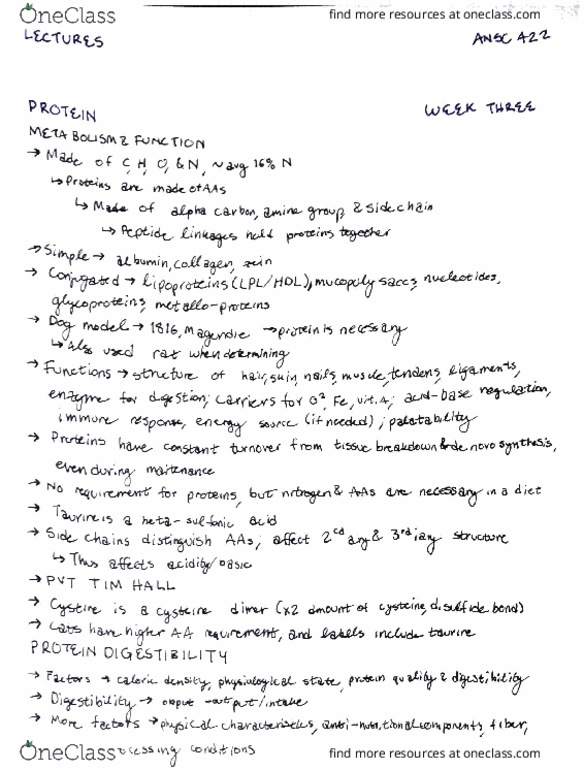 OneClass find more resources at oneclass.com
LECTURES ANSC 422
PROTEIN WEEK THREE
METABOLISM & FUNCTION
→ Made of C, H, O, & N, ~avg 16% N
↳ Proteins are made of AAs
↳ Made of alpha carbon, amine group, & side chain
↳ Peptide linkages hold proteins together
→ Simple → albumin, collagen, zein
→ Conjugated → lipoproteins (LPL/HDL), mucopoly sacc, nucleotides,
glycoproteins, metallo-proteins
→ Dog model → 1816, Magendie → protein is necessary
↳ Also used rat when determining
→ Functions → structure of hair, skin, nails, muscle, tendens, ligaments,
enzyme for digestion; carriers for O², Fe, vit. A; acid-base regulation,
immune response, energy source (if needed); palatability
→ Proteins have constant turnover from tissue breakdown & de novo synthesis,
even during maitenance
→ No requirement for proteins, but nitrogen & AAs are necessary in a diet
→ Taurine is a beta-sulfonic acid
→ Side chains distinguish AAs; affect 2ⁿᵈary & 3ʳᵈiary structure
↳ Thus affects acidity/basic
→ PVT TIM HALL
→ Cystine is a cysteine dimer (x2 amount of cysteine, disulfide bond)
→ Cats have higher AA requirement, and labels include taurine
PROTEIN DIGESTIBILITY
→ Factors → caloric density, physiological state, protein quality & digestibility
→ Digestibility → output/intake
→ More factors → physical characteristics, anti-nutritional components, fiber,
OneClass ocessing conditions find more resources at oneclass.com